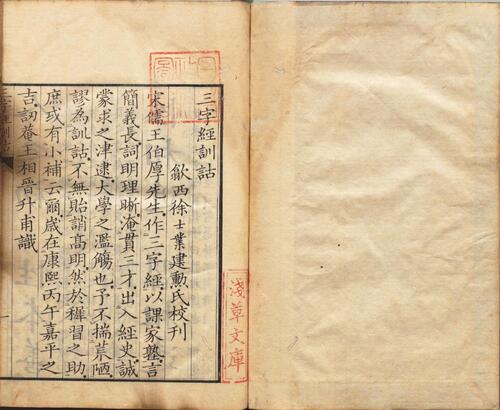 三字經訓詁
歙西徐士業建勳氏校刊
宋儒王伯厚先生作三字經以課家塾言
簡義長詞明理晰淹貫三才出入經史誠
蒙求之津逮大學之濫觴也予不揣荒陋
謬為訓詁不無貽誚高明然於穉習之助
庶或有小補云爾歲在康熙丙午嘉平之
吉訒菴王相晉升甫識
淺草文庫